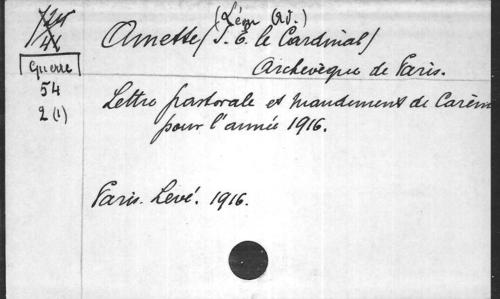 (Léon (Ad.)
Amette (S. E. le Cardinal)
Archevêque de Paris.
Guerre
54
2 (1)
Lettre pastorale et mandement de Carême
pour l'année 1916.
Paris. Levé. 1916.